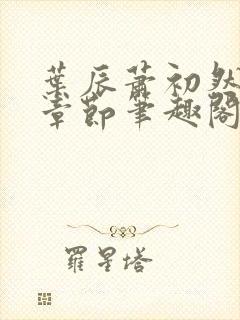 葉辰蕭初然
章節筆趣閣
羅星塔